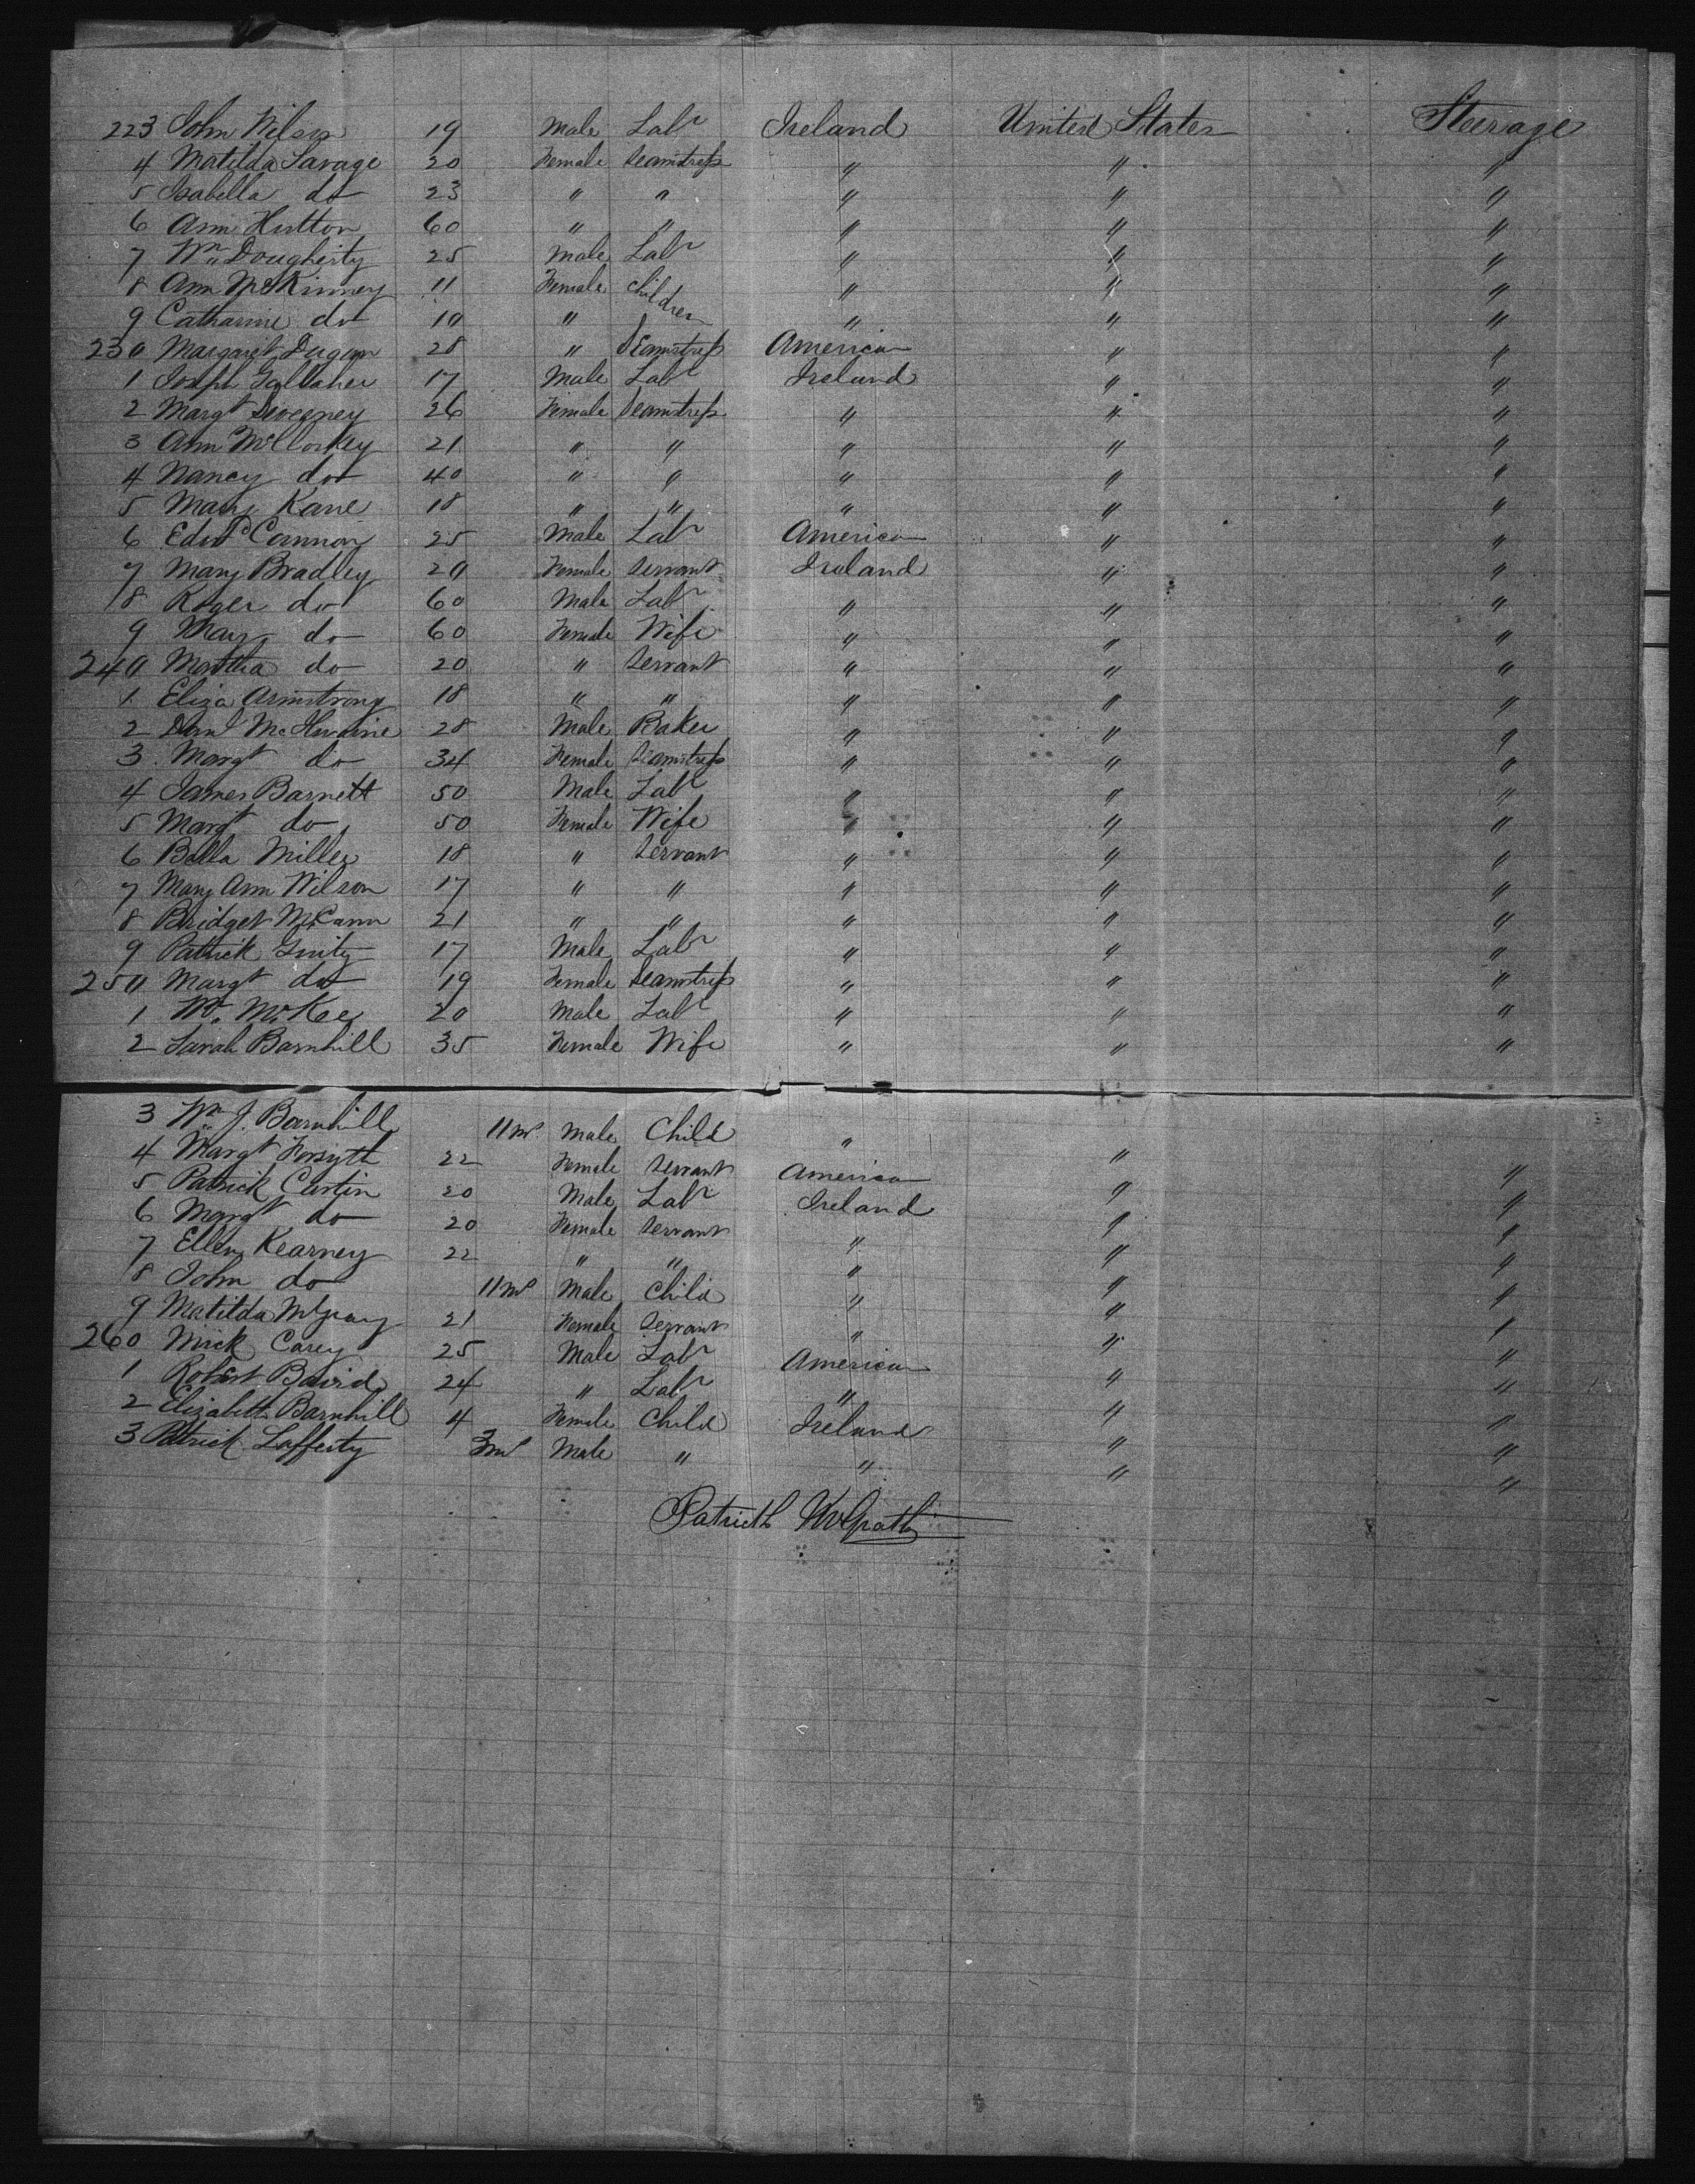 223 John Wilson 19 Male Labr Ireland United States Steerage
4 Matilda Savage 20 Female Seamstress " " "
5 Isabella do 23 " " " " "
6 Ann Hutton 60 " " " " "
7 Wm Dougherty 25 Male Labr " " "
8 Ann McKinney 11 Female Children " " "
9 Catharine do 10 " " " "
230 Margaret Dugan 28 " Seamstress America " "
1 Joseph Gallaher 17 Male Labr Ireland " "
2 Margt Sweeney 26 Female Seamstress " " "
3 Ann McCloskey 21 " " " " "
4 Nancy do 40 " " " " "
5 Mary Kane 18 " " " " "
6 Edwd Connor 25 Male Labr America " "
7 Mary Bradley 20 Female Servant Ireland " "
8 Roger do 60 Male Labr " " "
9 Mary do 60 Female Wife " " "
240 Martha do 20 " Servant " " "
1 Eliza Armstrong 18 " " " " "
2 Danl 28 Male Baker " " "
3 Margt do 34 Female Seamstress " " "
4 James Barnett 50 Male Labr " " "
5 Margt do 50 Female Wife " " "
6 Bella Miller 18 " Servant " " "
7 Mary Ann Wilson 17 " " " " "
8 Bridget McCann 21 " " " " "
9 Patrick Ginity 17 Male Labr " " "
250 Margt do 19 Female Seamstress " " "
1 Wm McKee 20 Male Labr " " "
2 Sarah Barnhill 35 Female Wife " " "
3 Wm J. Barnhill 11ms Male Child " "
4 Margt Forsyth 22 Female Servant America " "
5 Patrick Cartin 20 Male Labr Ireland " "
6 Margt do 20 Female Servant " " "
7 Ellen Kearney 22 " " " " "
8 John do 11ms Male Child " " "
9 Matilda 21 Female Servant " " "
260 Mick Carey 25 Male Labr America " "
1 Robert Baird 24 " Labr " " "
2 Elizabeth Barnhill 4 Female Child Ireland " "
3 Patrick Lafferty 3ms Male " " " "
Patrick McGrath